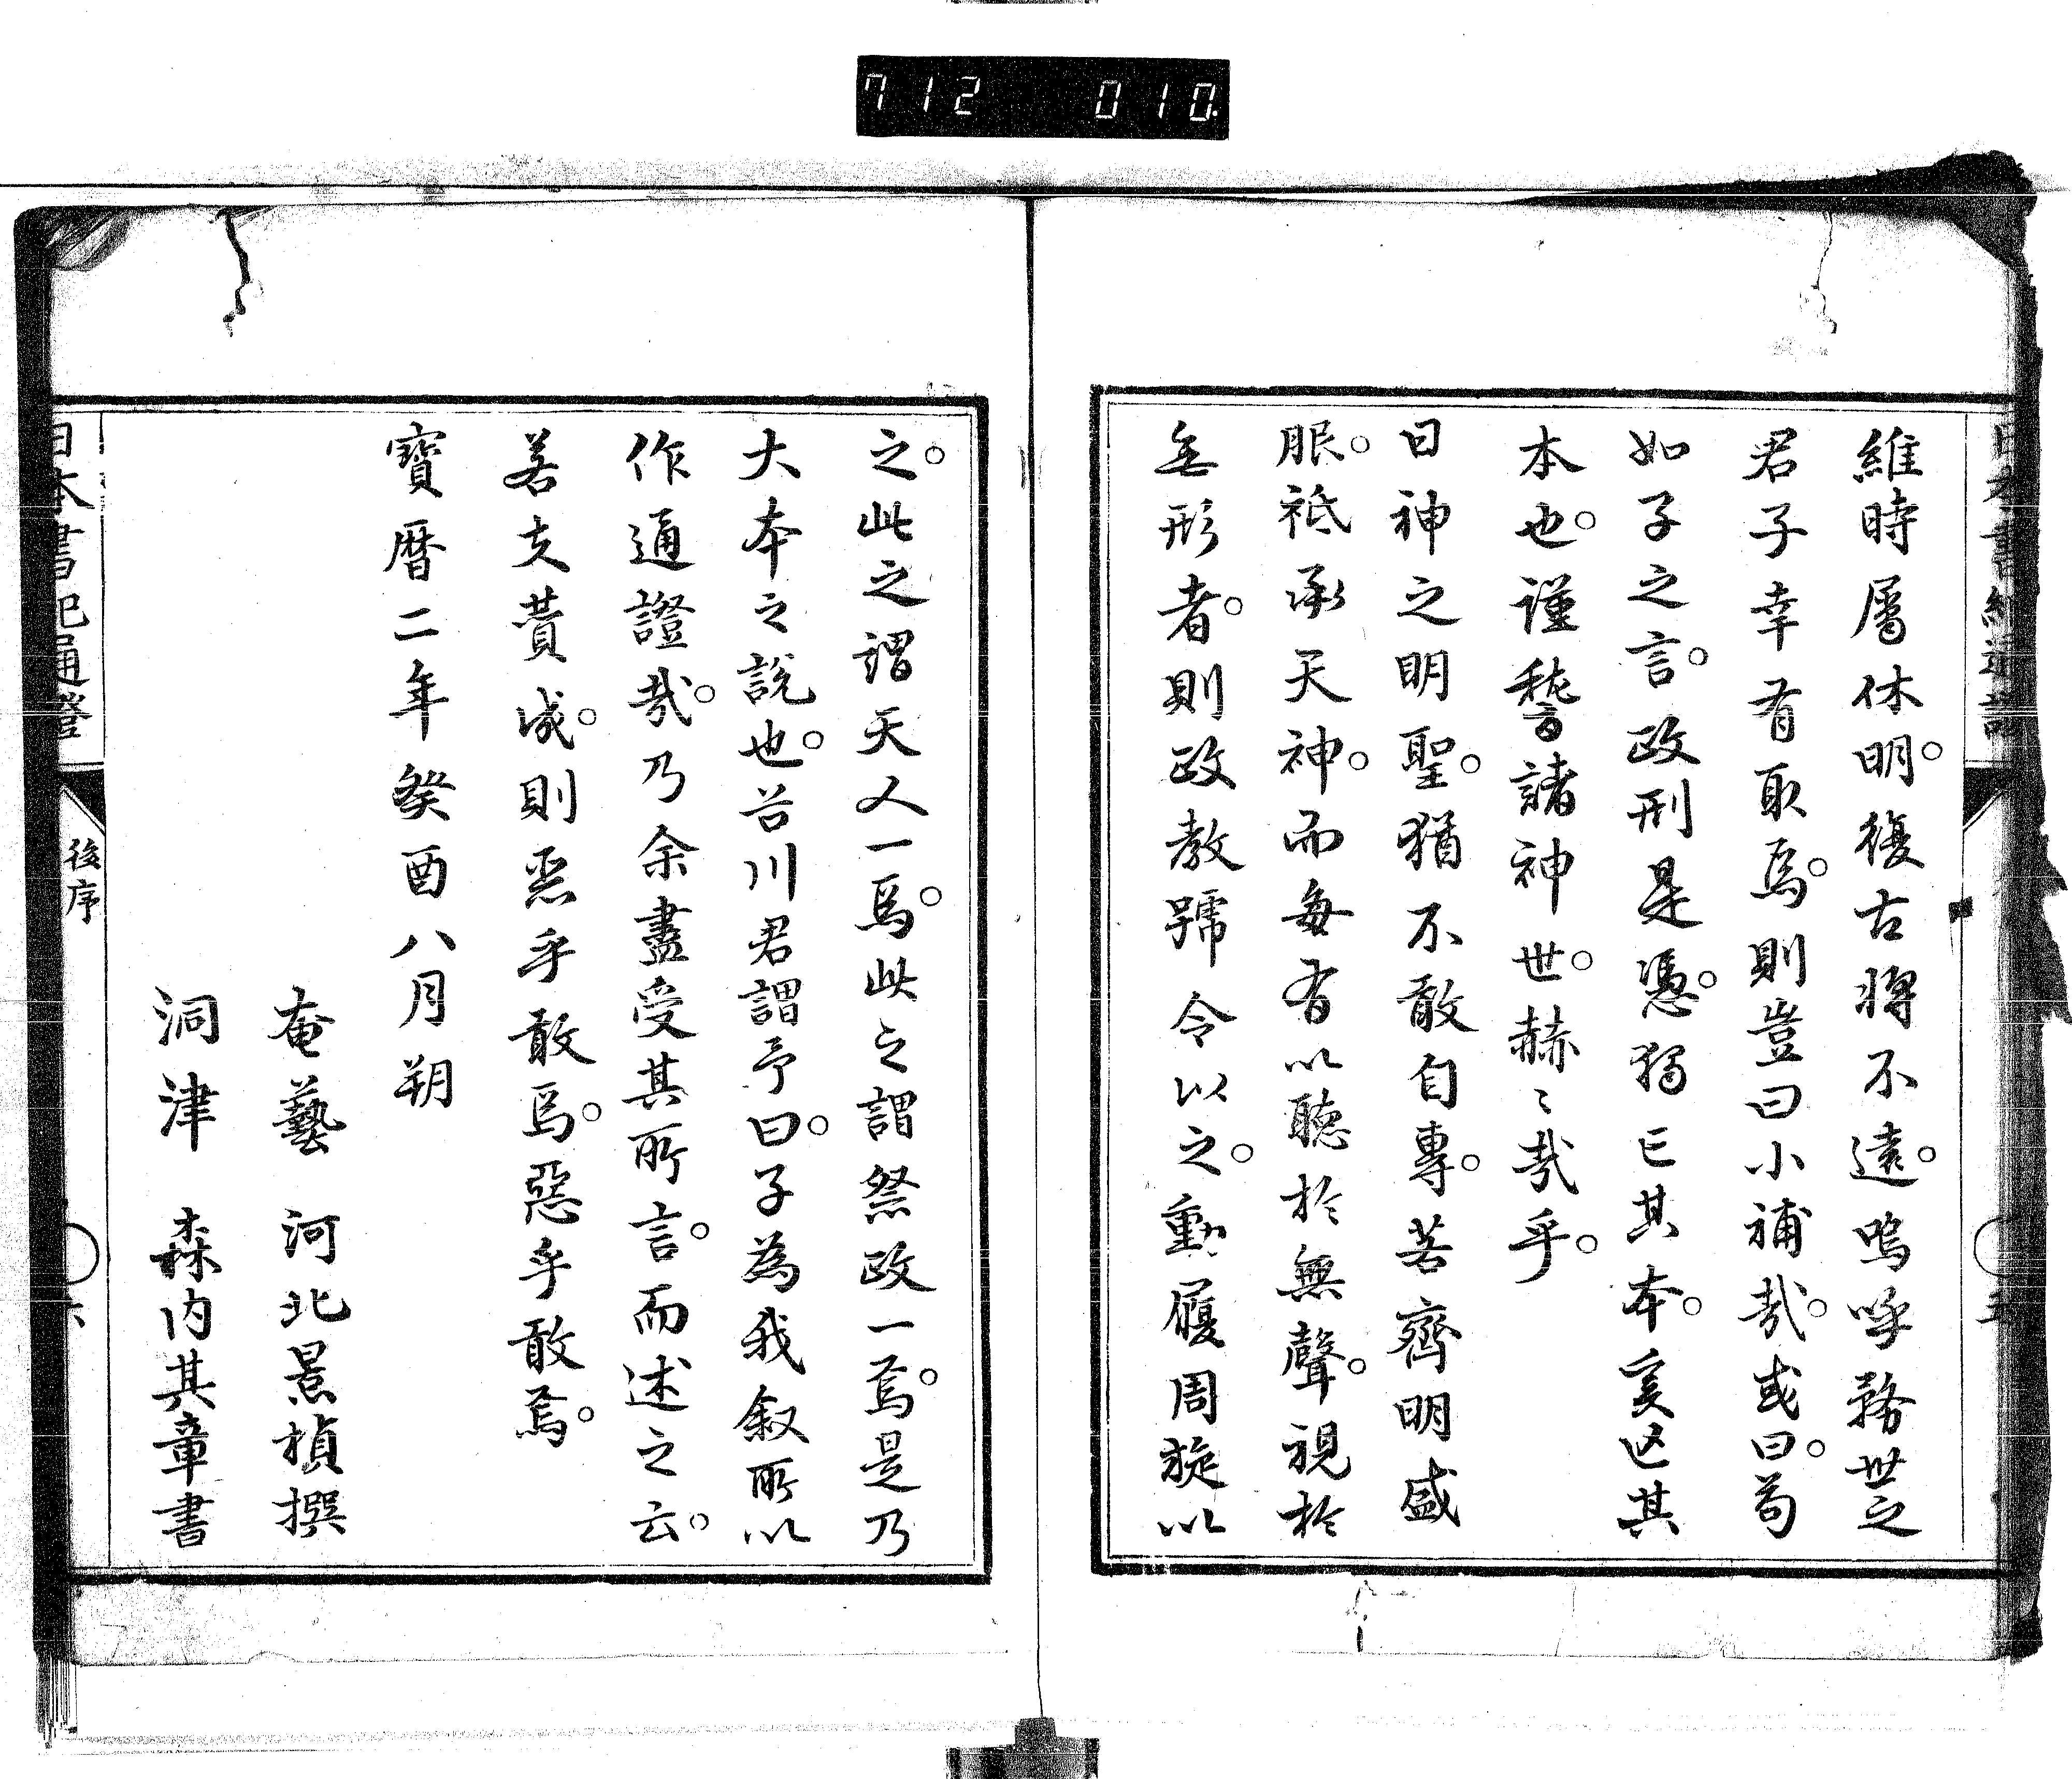 712 010
日本書紀通證
維時屬休明。復古將不遠。嗚呼務世之
君子幸有取焉。則豈曰小補哉。或曰。苟
如子之言。政刑是憑。獨亡其本。其
本也。謹稽諸神世。赫〻哉乎。
日神之明聖。猶不敢自專。若齊明盛
服。祗承天神。而每有以聽於無聲。視於
無形者。則政教號令以之。動履周旋以
之。此之謂天人一焉。此之謂祭政一焉。是乃
大本之說也。谷川君謂予曰。子為我叙所以
作通證哉。乃余盡受其所言。而述之云。
若夫贊成。則惡乎敢焉。惡乎敢焉。
寶暦二年癸酉八月朔
奄藝 河北景楨撰
洞津 森内其章書
日本書紀通證 後序 六